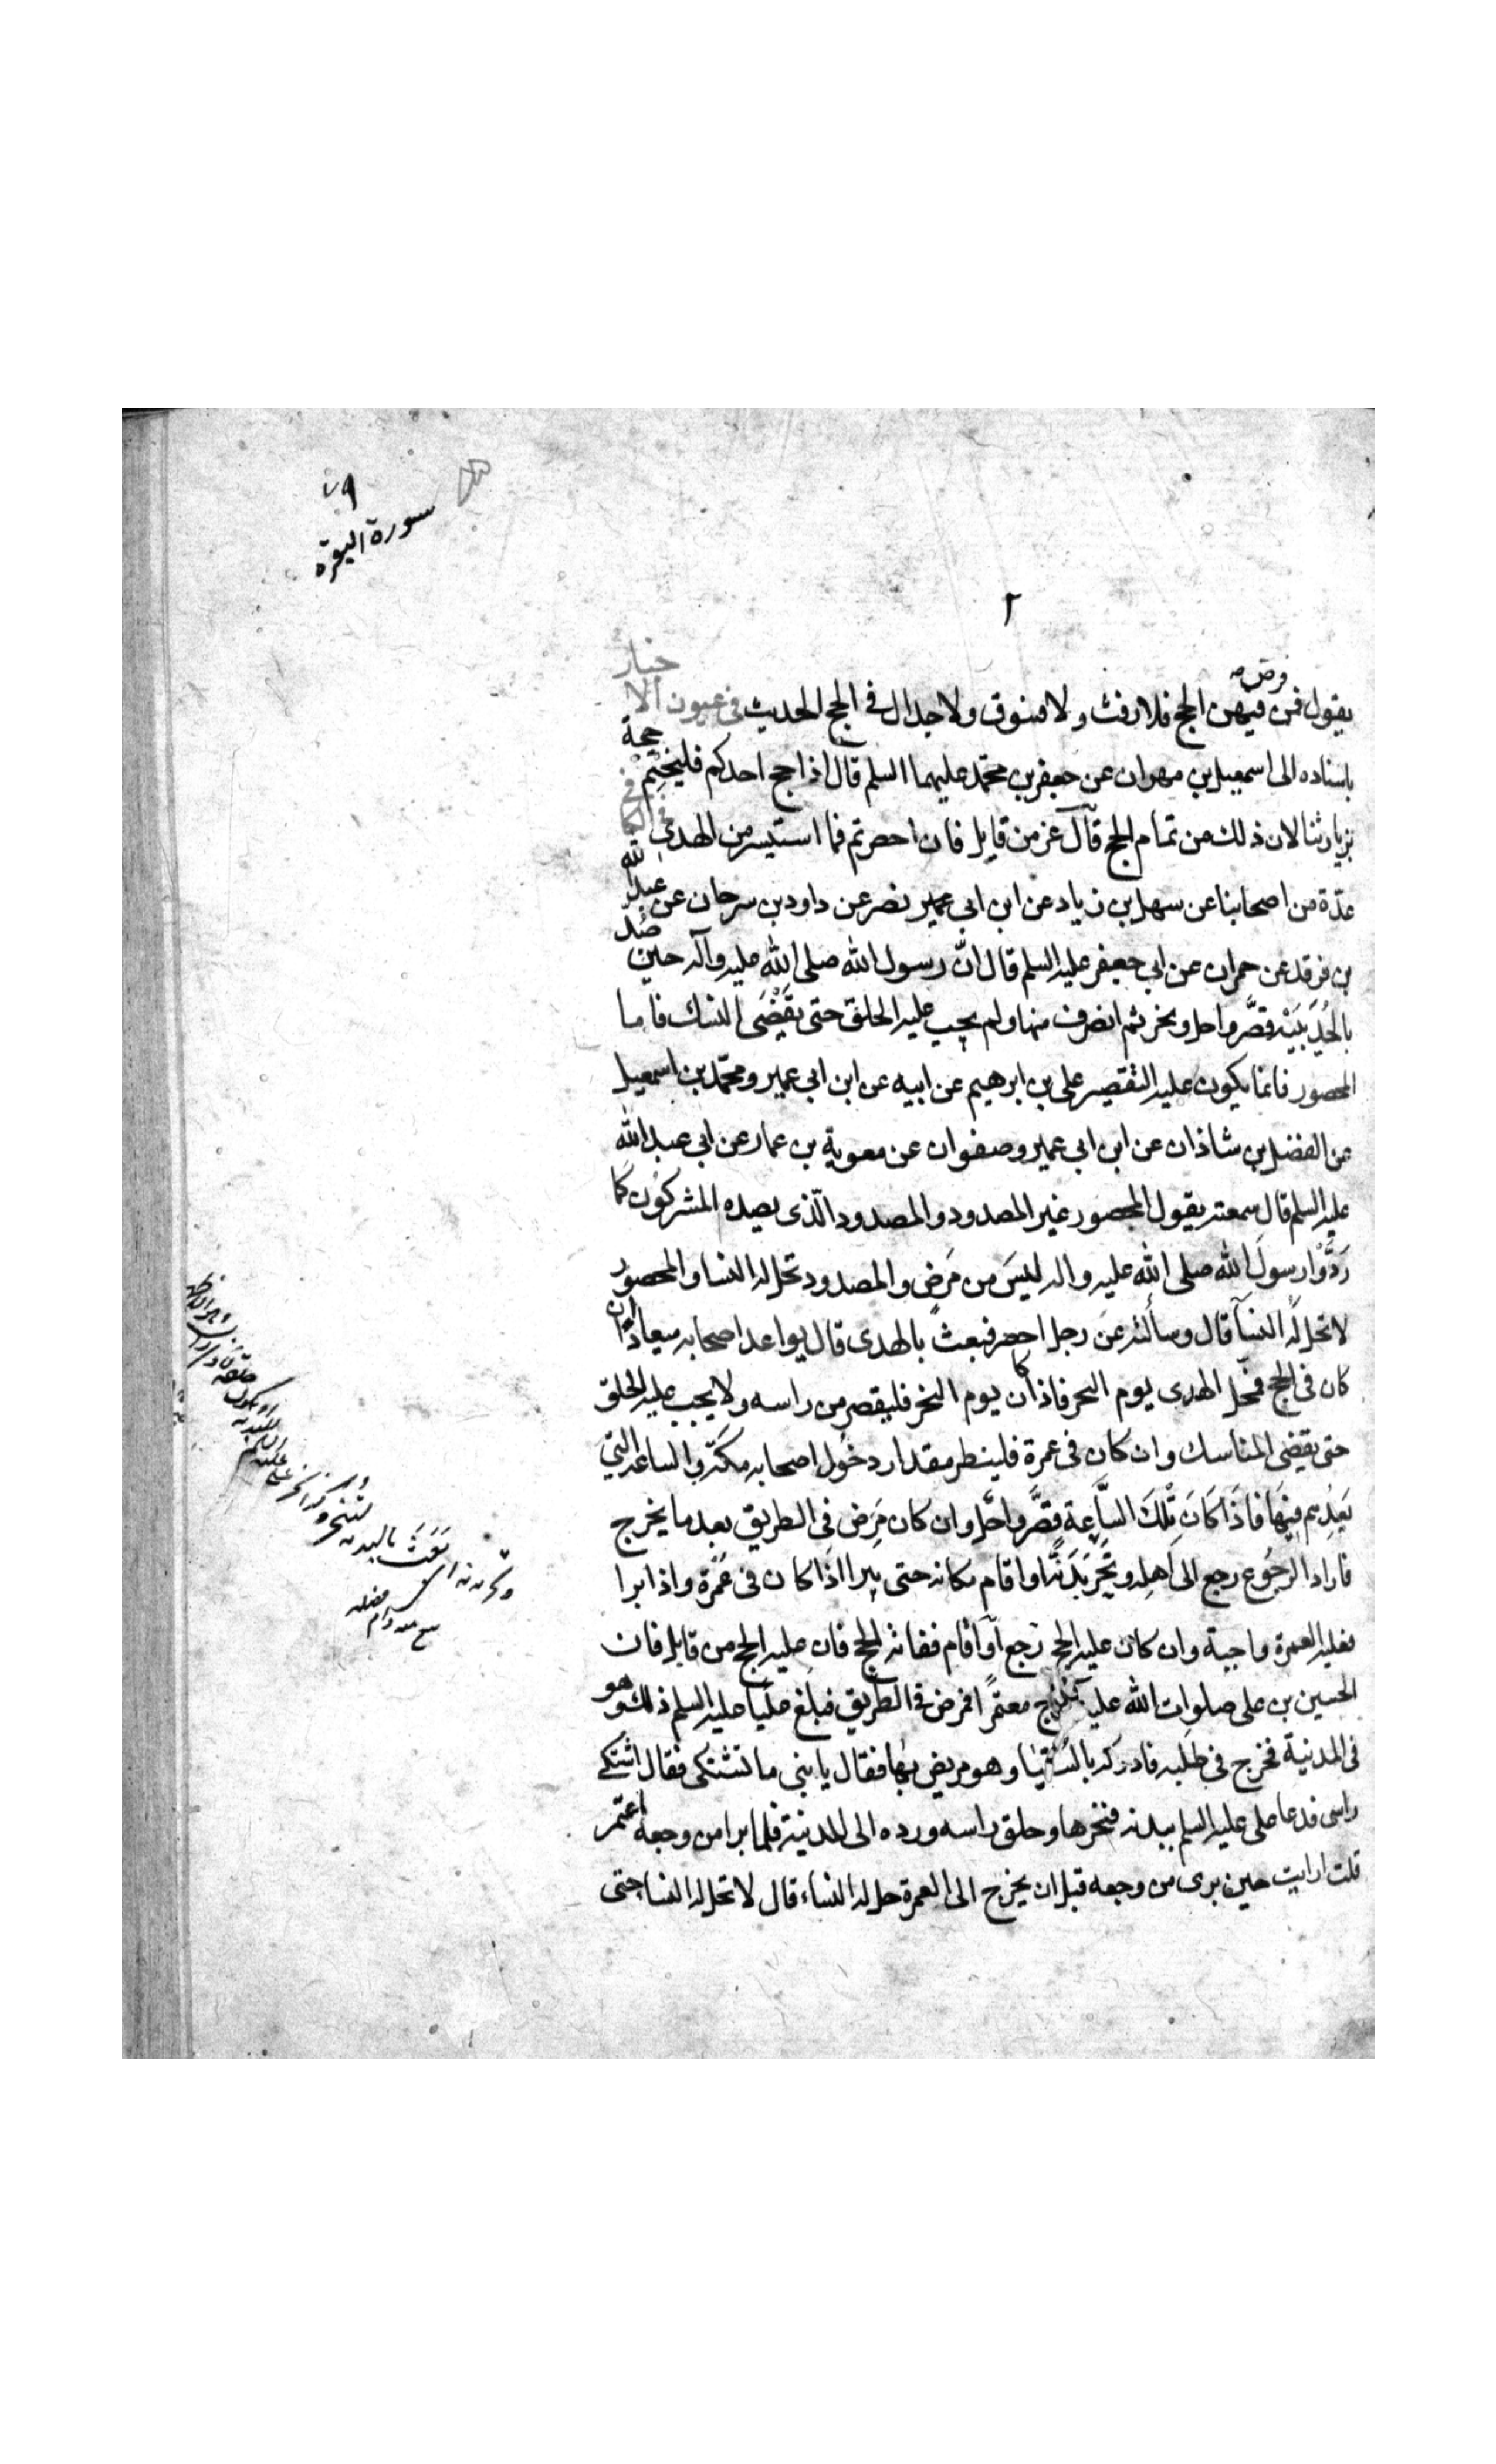 ٧٩
سورة البقرة
٢
يقول فمن فرض فيهن الحج فلا رفث ولا فسوق ولا جدال في الحج الحديث في عيون الاخبار
باسناده الى اسمعيل بن مهران عن جعفر بن محمد عليهما السلم قال اذا حج احدكم فليختم حجة
بزيارتنا لان ذلك من تمام الحج قال عز من قايل فان احصرتم فما استيسر من الهدى في الكافي
عدة من اصحابنا عن سهل بن زياد عن ابن ابي عمير نصر عن داود بن سرحان عن عبد الله
بن فرقد عن حمران عن ابي جعفر عليه السلم قال ان رسول الله صلى الله عليه وآله حين صد
بالحُدَيبيَة قصَّر واحل ونحر ثم انصرف منها ولم يجب عليه الحلق حتى يَقْضَى النسك فاما
المحصور فانما يكون عليه التقصير على بن ابرهيم عن ابيه عن ابن ابي عمير ومحمد بن اسمعيل
عن الفضل بن شاذان عن ابن ابي عمير وصفوان عن معوية بن عمار عن ابي عبد الله
عليه السلم قال سمعته يقول المحصور غير المصدود والمصدود الّذى يصده المشركون كما
رَدُّوْا رسولَ الله صلى الله عليه واله ليسَ من مَرَضٍ والمصدود تحل له النسا والمحصور
لا تحل لهُ النسآ قال وسألته عن رجل احصر فبعث بالهدى قال يواعد اصحابه ميعادًا ان
كان في الحج فمحل الهدى يوم النحر فاذا كان يوم النحر فليقصر من راسه ولا يجب عليه الحلق
حتى يقضى المناسك وان كان في عمرة فلينظر مقدار دخول اصحابه مكة والساعة التي
يَعِدُهم فيْهَا فاذَا كَانَ تِلْكَ السَّاعة قصَّر واحَلَّ وان كان مَرَض في الطريق بعد ما يخرج
فاراد الرجُوع رجع الى اهله ونَحَرَ بَدَنَةً او اقام مكانه حتى يبرا اذا كان في عُمْرة واذا برا
فعليه العمرة واجبة وان كان عليه الحج رجع اوْ اقام ففاته الحج فان عليه الحج من قابل فان
الحسين بن على صلوات الله عليه خرج معتمرًا فمرض في الطريق فبلغ عليًا عليه السلم ذلك وهو
في المدينة فخرج في طلبه فادركه بالسُّقيا وهو مريض بها فقال يا بنى ما تشتكى فقال اشتكي
راسى فدعا على عليه السلم ببدنة فنحرها وحلق راسه ورده الى المدينة فلما برا من وجعه اعتمر
قلت ارايت حين برى من وجعه قبل ان يخرج الى العمرة حل له النساء قال لا تحل له النسا حتى